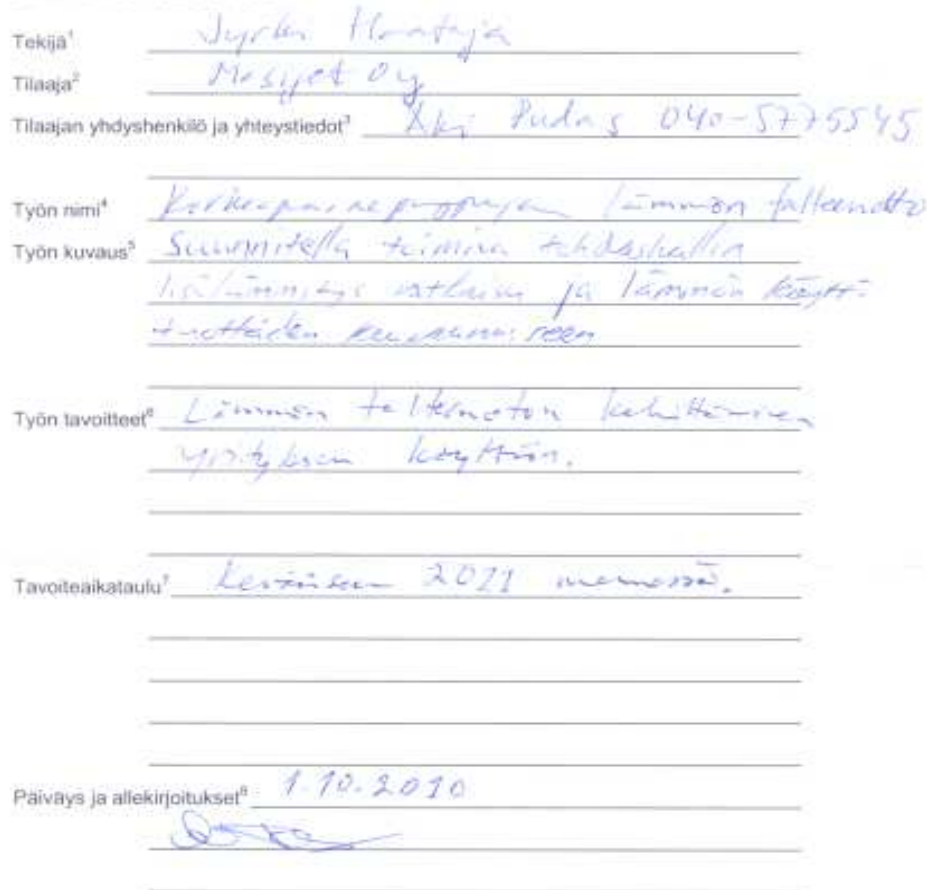 Tekijä¹ Jyrki Haataja
Tilaaja² Mesijet Oy
Tilaajan yhdyshenkilö ja yhteystiedot³ Aki Pudas 040-5775545
Työn nimi⁴ Korkeapainepumppujen lämmön talteenotto
Työn kuvaus⁵ Suunnitella toimiva tehdashallin
lisälämmitys ratkaisu ja lämmön käyttö
tuotteiden
Työn tavoitteet⁶ Lämmön talteenoton kehittäminen
yrityksen käyttöön.
Tavoiteaikataulu⁷ Kevääseen 2011 mennessä.
Päiväys ja allekirjoitukset⁸ 1.10.2010